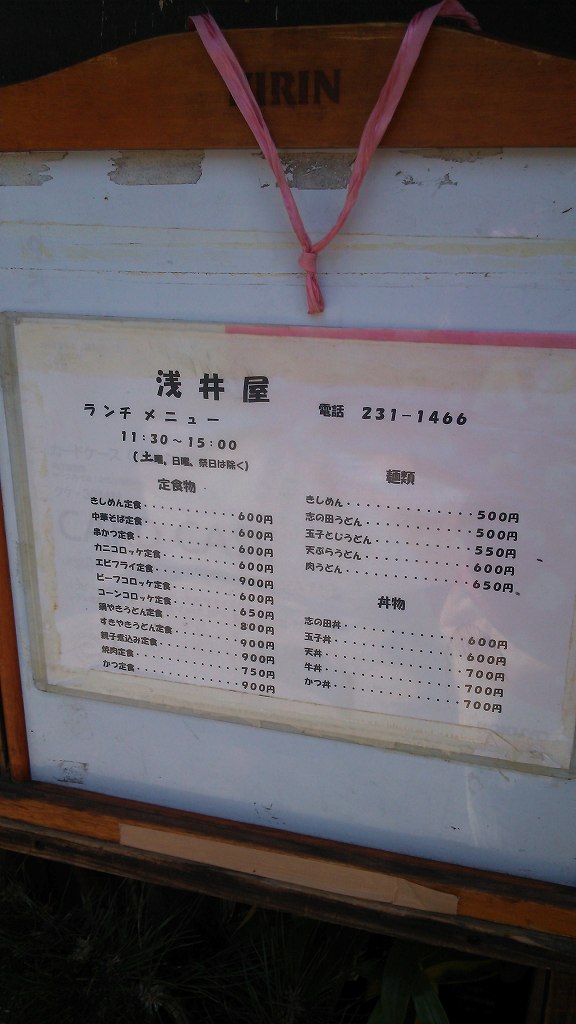 KIRIN
浅井屋
ランチ メニュー
電話 231-1466
11:30~15:00
(土曜、日曜、祭日は除く)
定食物
きしめん定食・・・・・・・・・・・600円
中華そば定食・・・・・・・・・・・600円
串かつ定食・・・・・・・・・・・・600円
カニコロッケ定食・・・・・・・・・600円
エビフライ定食・・・・・・・・・・900円
ビーフコロッケ定食・・・・・・・・600円
コーンコロッケ定食・・・・・・・・650円
鍋やきうどん定食・・・・・・・・・800円
すきやきうどん定食・・・・・・・・900円
親子煮込み定食・・・・・・・・・・900円
焼肉定食・・・・・・・・・・・・・750円
かつ定食・・・・・・・・・・・・・900円
麺類
きしめん・・・・・・・・・・・・・500円
志の田うどん・・・・・・・・・・・500円
玉子とじうどん・・・・・・・・・・550円
天ぷらうどん・・・・・・・・・・・600円
肉うどん・・・・・・・・・・・・・650円。
丼物
志の田丼・・・・・・・・・・・・・600円
玉子丼・・・・・・・・・・・・・・600円
天丼・・・・・・・・・・・・・・・700円
牛丼・・・・・・・・・・・・・・・700円
かつ丼・・・・・・・・・・・・・・700円